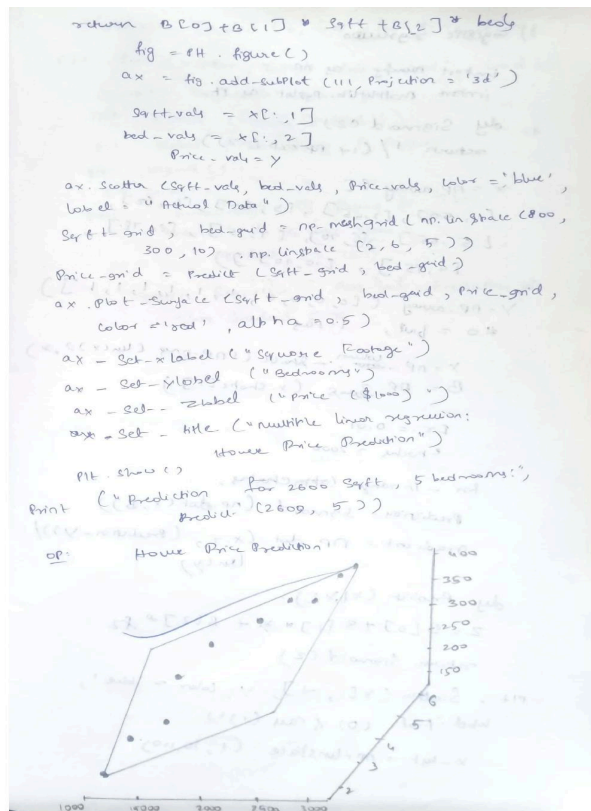 return B[0] + B[1] * Sqft + B[2] * beds
fig = Plt. figure()
ax = fig. add-subplot (111, Projection = '3d')
Sqft-vals = X[:,1]
bed-vals = X[:,2]
Price-vals = Y
ax. Scatter (Sqft-vals, bed-vals, Price-vals, color = 'blue',
Label = "Actual Data")
Sqft-grid, bed-grid = np-meshgrid (np. linspace (800,
300, 10) , np. linspace (2, 6, 5))
Price-grid = Predict (Sqft-grid, bed-grid)
ax. Plot-Surface (Sqft-grid, bed-grid, Price-grid,
color = 'red', alpha = 0.5)
ax - Set-xlabel ("Square Footage")
ax - Set-ylabel ("Bedrooms")
ax - Set-- Zlabel ("Price ($1000) ")
Set - title ("multiple linear regression:
House Price Prediction")
Plt. show()
Print ("Prediction for 2600 Sqft, 5 bedrooms:",
Predict (2600, 5))
OP: House Price Prediction
400
350
300
250
200
150
6
5
4
3
2
1000 2000 2500 3000